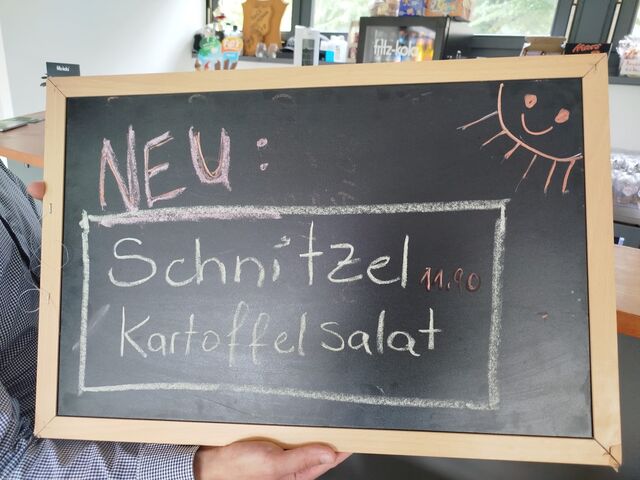 fritz-kola
NEU:
Schnitzel 11.90
Kartoffelsalat